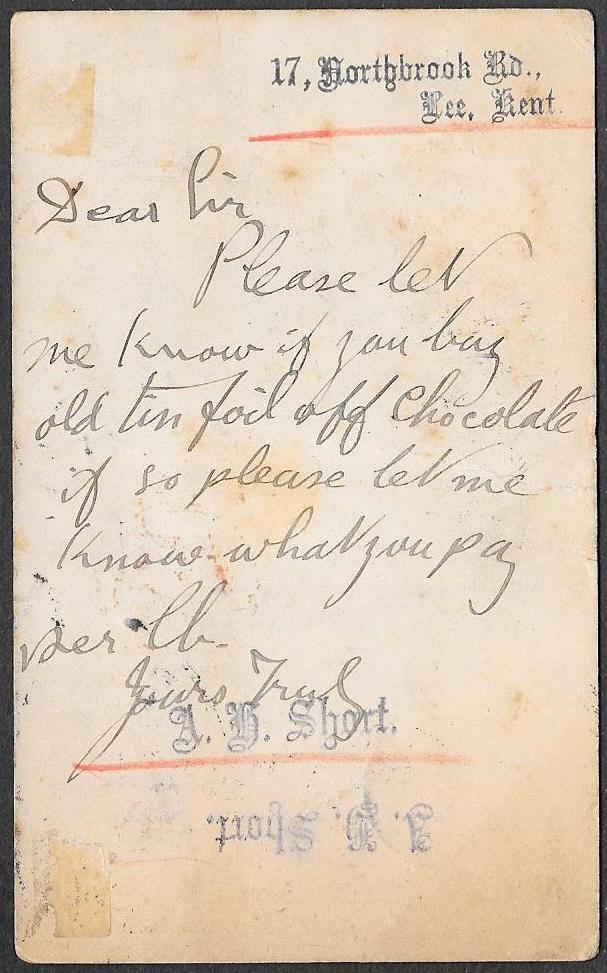 17, Northbrook Rd.,
Lee, Kent.
Dear Sir
Please let
me know if you buy
old tin foil off chocolate
if so please let me
know what you pay
per lb.
Yours Truly
A. H. Short.
A. H. Short.